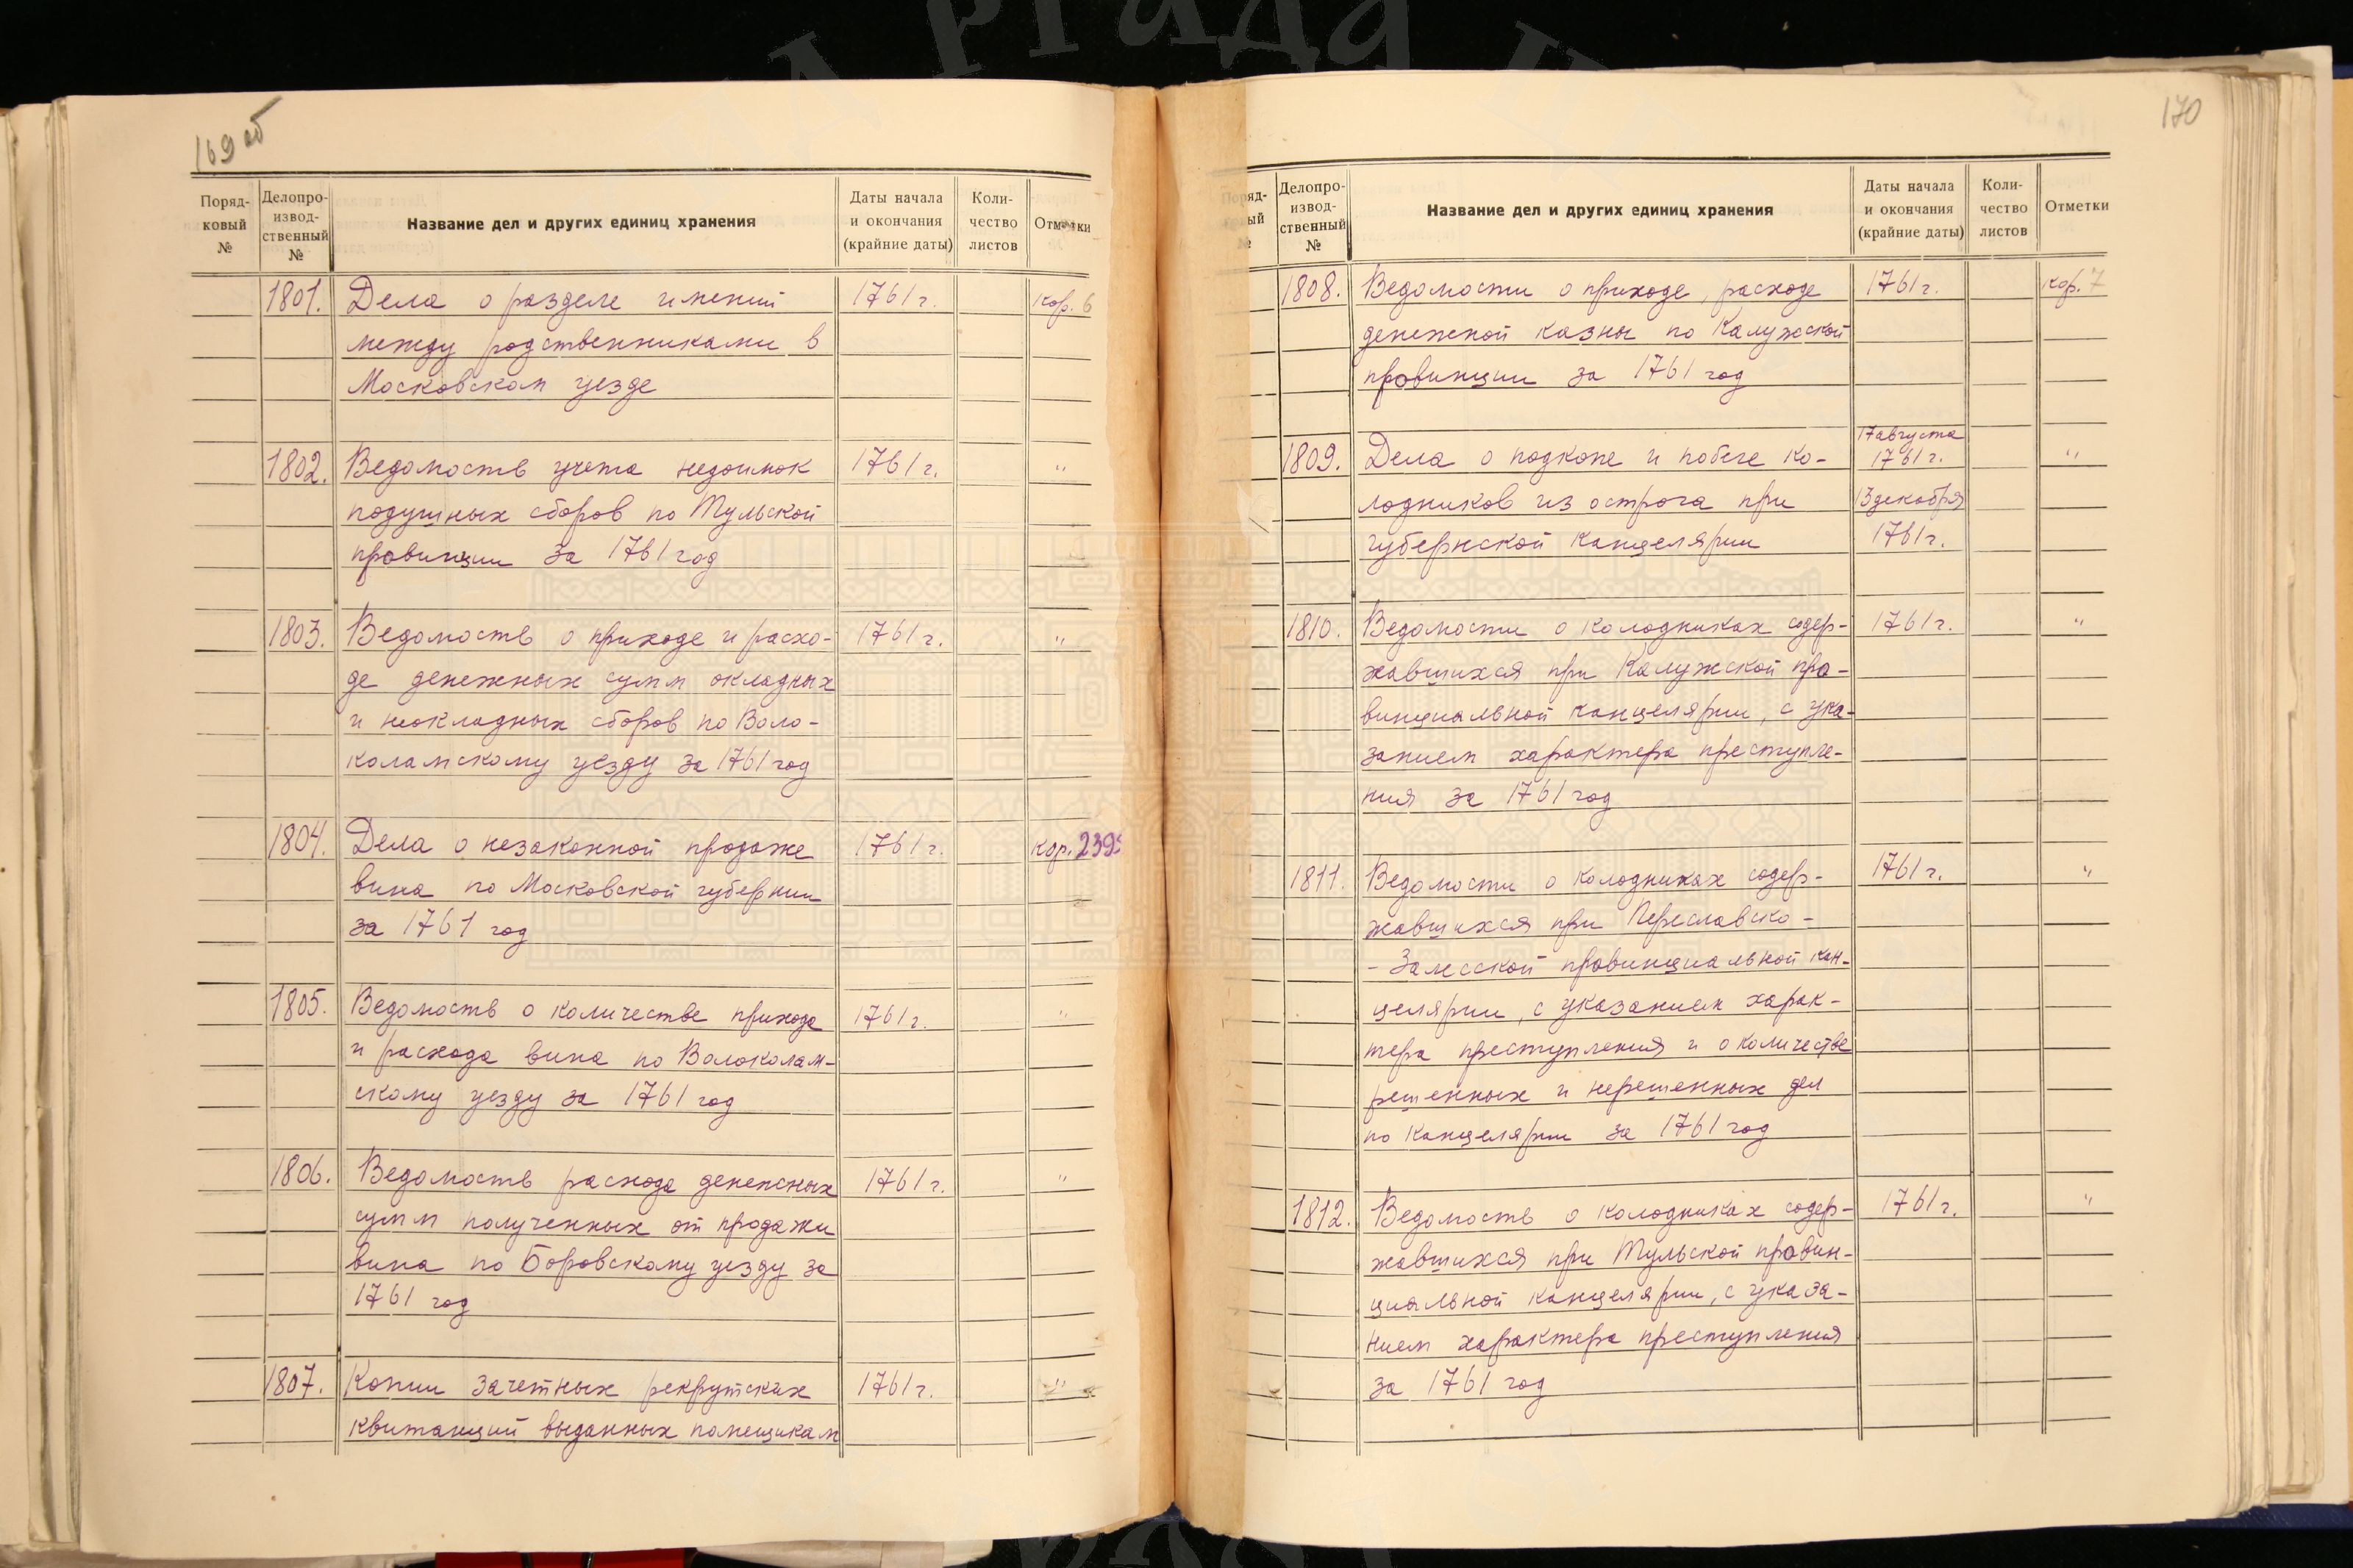 169об
Поряд-
ковый
№
Делопро-
извод-
ственный
№
Название дел и других единиц хранения
Даты начала
и окончания
(крайние даты)
Коли-
чество
листов
Отметки
1801. Дела о разделе имений 1761 г. кор. 6
между родственниками в
Московском уезде
1802. Ведомость учета недоимок 1761 г. "
подушных сборов по Тульской
провинции за 1761 год
1803. Ведомость о приходе и расхо- 1761 г. "
де денежных сумм окладных
и неокладных сборов по Воло-
коламскому уезду за 1761 год
1804. Дела о незаконной продаже 1761 г. кор. 239
вина по Московской губернии
за 1761 год
1805. Ведомость о количестве прихода 1761 г. "
и расхода вина по Волоколам-
скому уезду за 1761 год
1806. Ведомость расхода денежных 1761 г. "
сумм полученных от продажи
вина по Боровскому уезду за
1761 год
1807. Копии зачетных рекрутских 1761 г. "
квитанций выданных помещикам
170
Поряд-
ый
№
Делопро-
извод-
ственный
№
Название дел и других единиц хранения
Даты начала
и окончания
(крайние даты)
Коли-
чество
листов
Отметки
1808. Ведомости о приходе, расходе 1761 г. кор. 7
денежной казны по Калужской
провинции за 1761 год
17 августа
1809. Дела о подкопе и побеге ко- 1761 г. "
лодников из острога при 13 декабря
губернской канцелярии 1761 г.
1810. Ведомости о колодниках содер- 1761 г. "
жавшихся при Калужской про-
винциальной канцелярии, с ука-
занием характера преступле-
ния за 1761 год
1811. Ведомости о колодниках содер- 1761 г. "
жавшихся при Переславско-
- Залесской провинциальной кан-
целярии, с указанием харак-
тера преступления и о количестве
решенных и нерешенных дел
по канцелярии за 1761 год
1812. Ведомость о колодниках содер- 1761 г. "
жавшихся при Тульской провин-
циальной канцелярии, с указа-
нием характера преступления
за 1761 год